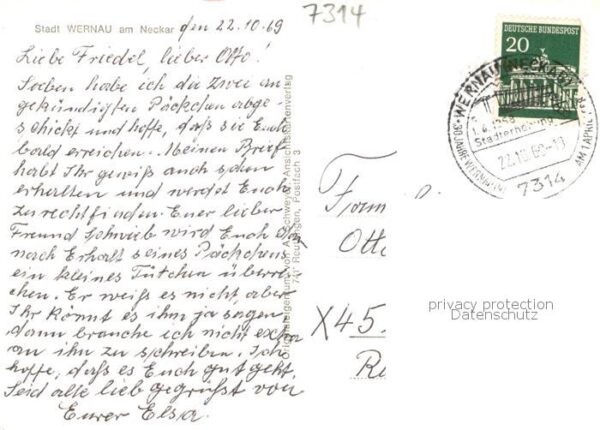 Stadt WERNAU am Neckar den 22.10.69
7314
Liebe Friedel, lieber Otto!
Soeben habe ich die zwei an
gekündigten Päckchen abge-
schickt und hoffe, daß sie Euch
bald erreichen. Meinen Brief
habt Ihr gewiß auch schon
erhalten und werdet Euch
zurechtfinden. Euer lieber
Freund wird Euch
nach Erhalt seines Päckchens
ein kleines Tütchen überrei-
chen. Er weiß es nicht aber
Ihr könnt es ihm ja sagen,
dann brauche ich nicht extra
an ihn zu schreiben. Ich
hoffe, daß es Euch gut geht.
Seid alle lieb gegrüßt von
Eurer Elsa.
741 Reutlingen, Postfach 3
DEUTSCHE BUNDESPOST
20
WERNAU (NECKAR)
Stadterhebung
22.10.69-19
7314
Fam
Otto
X45
privacy protection
Datenschutz